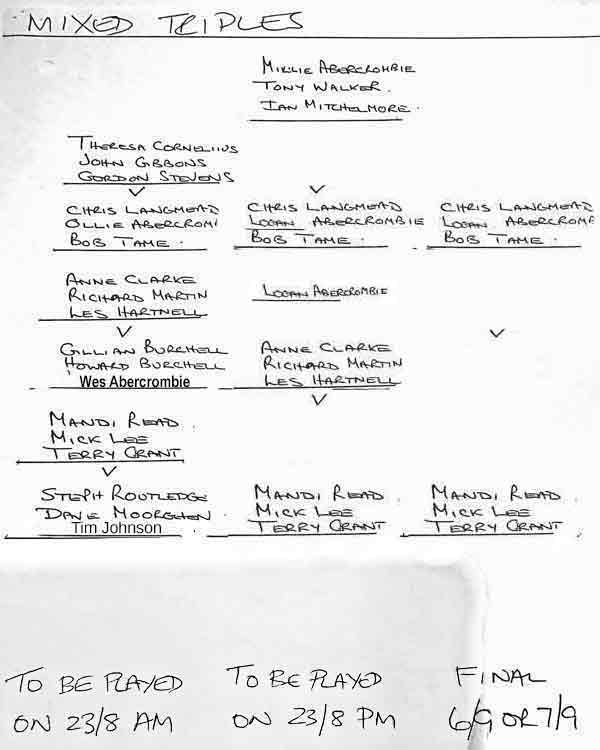 MIXED TRIPLES
MILLIE ABERCROMBIE
TONY WALKER.
IAN MITCHELMORE.
THERESA CORNELIUS
JOHN GIBBONS
GORDON STEVENS
V
V
CHRIS LANGMEAD
OLLIE ABERCROMI
BOB TAME.
CHRIS LANGMEAD
LOGAN ABERCROMBIE
BOB TAME.
CHRIS LANGMEAD
LOGAN ABERCROMB
BOB TAME.
ANNE CLARKE
RICHARD MARTIN
LES HARTNELL
LOGAN ABERCROMBIE
V
V
GILLIAN BURCHELL
HOWARD BURCHELL
Wes Abercrombie
ANNE CLARKE
RICHARD MARTIN
LES HARTNELL
V
MANDI READ
MICK LEE
TERRY GRANT
V
STEPH ROUTLEDGE
DAVE MOORGHEN
Tim Johnson
MANDI READ.
MICK LEE
TERRY GRANT
MANDI READ.
MICK LEE
TERRY GRANT
TO BE PLAYED
ON 23/8 AM
TO BE PLAYED
ON 23/8 PM
FINAL
6/9 OR 7/9